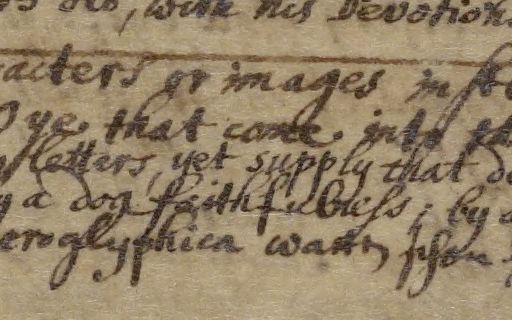 with his Devotions
acters or images in ste
ye that come into th
letters, yet supply that de
y a dog faithfulness; by a
eroglyphica